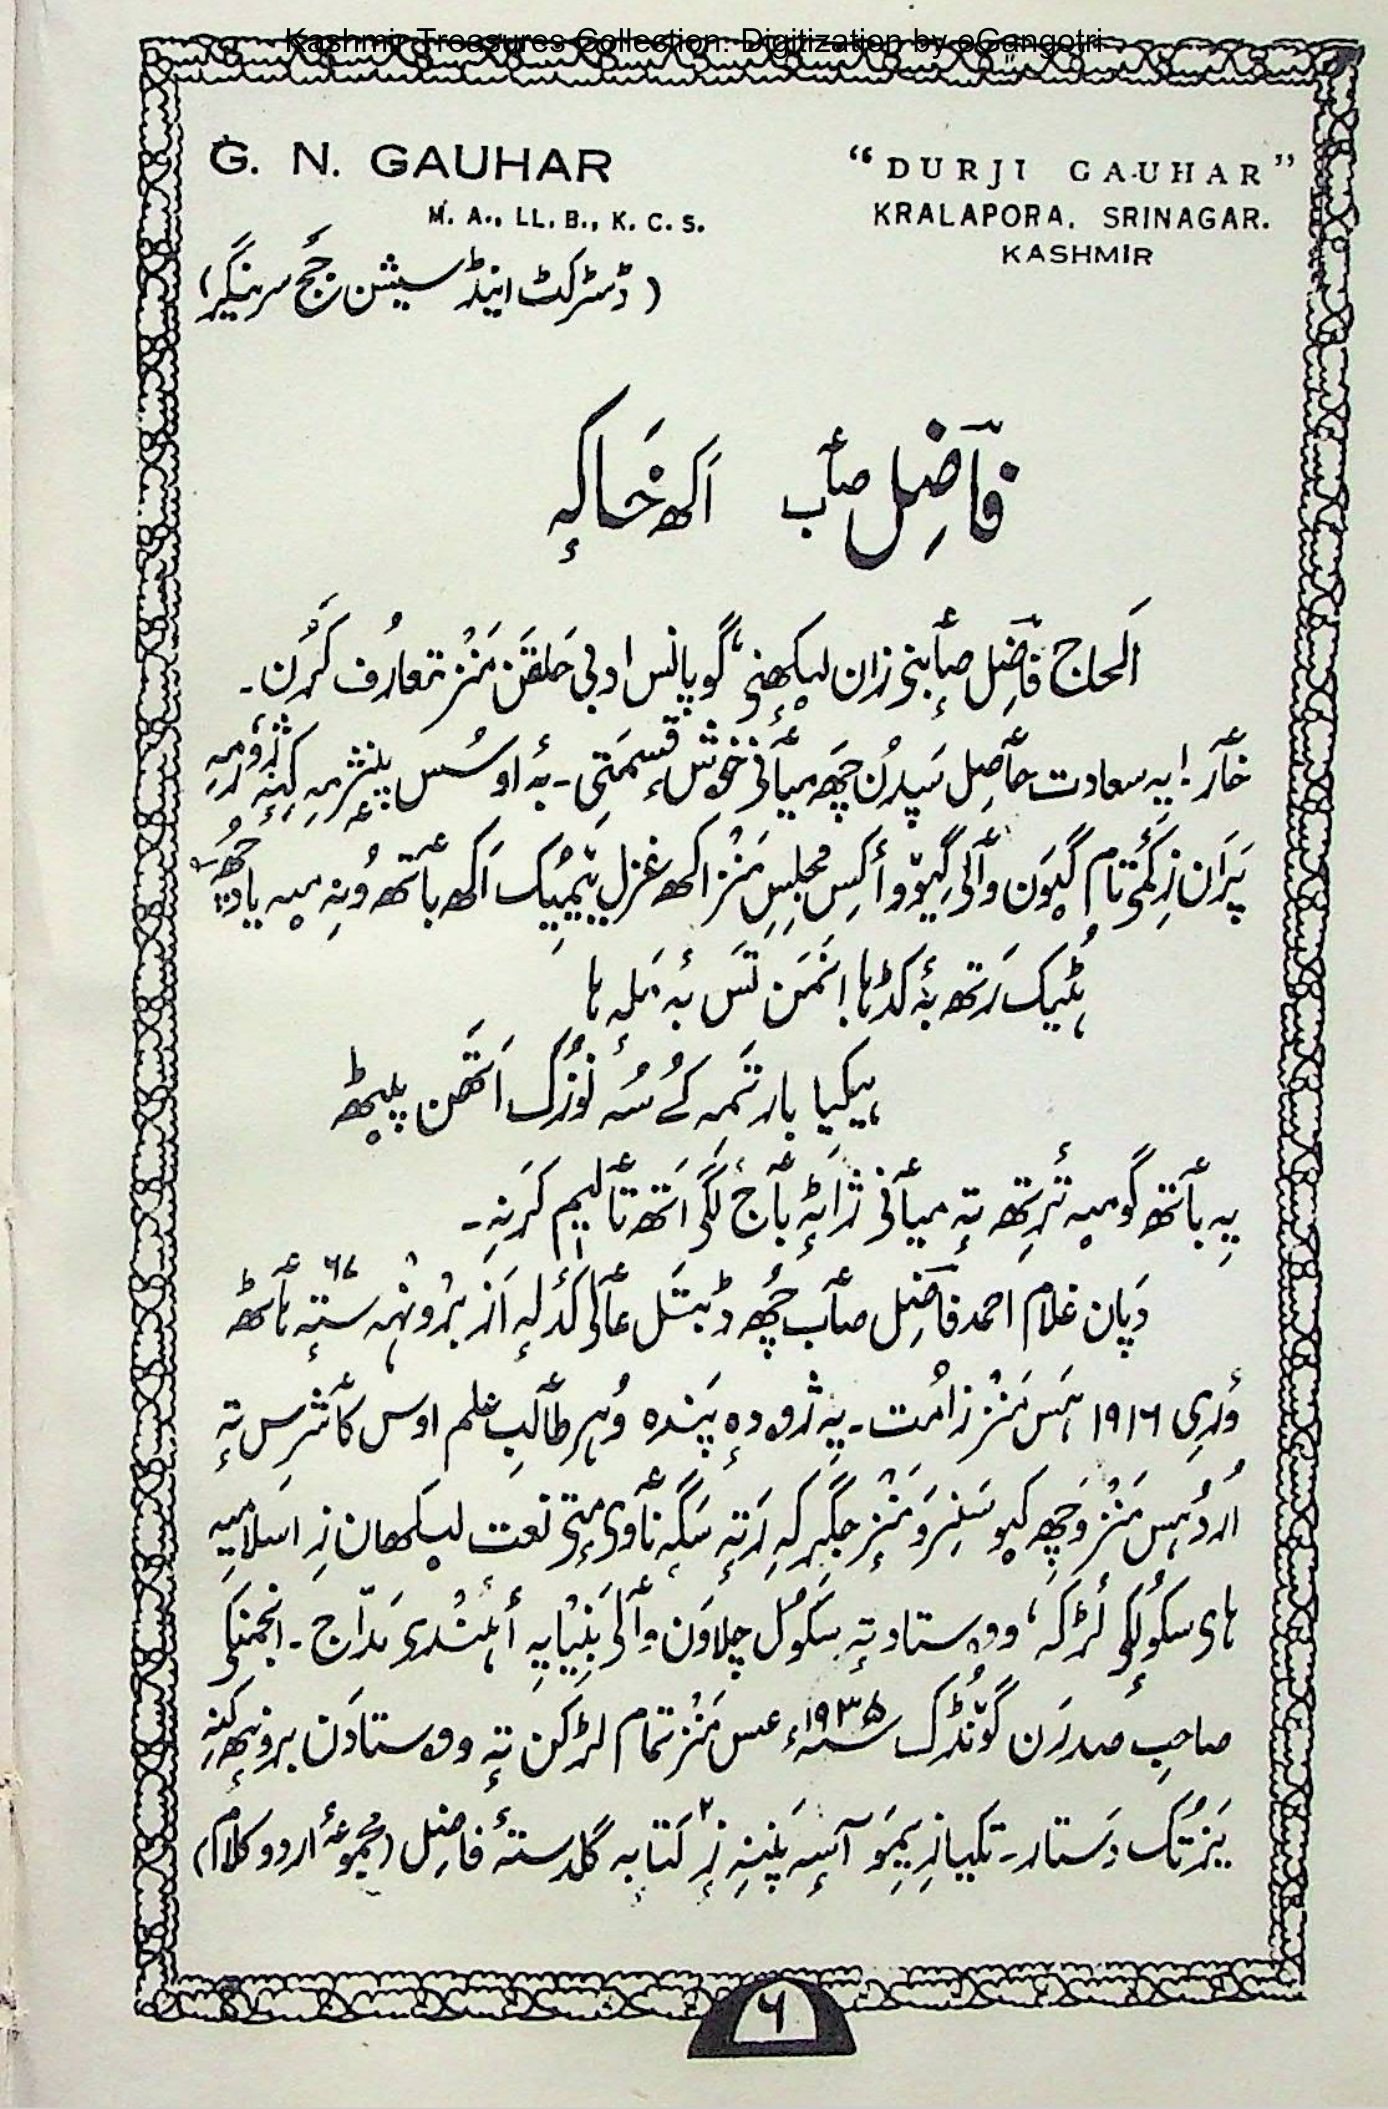 Kashmir Treasures Collection. Digitization by eGangotri
G. N. GAUHAR
M. A., LL. B., K. C. S.
(ڈسٹرکٹ اینڈ سیشن جج سرینگر)
"DURJI GAUHAR"
KRALAPORA, SRINAGAR.
KASHMIR
فٲضِل صٲب اَکھ خاکہٕ
اَلحاج فٲضِل صٲبنۍ زان لیکھنۍ، گویا پانس ادبی حلقَن مَنٛز تعارُف کرُن۔
خٲر! یہ سعادت حٲصِل سَپدُن چھَہ میٲنۍ خۄش قسمتی۔ بہٕ اوسُس پٕنژہمہِ کِنہٕ
پَرَان زِ کَمۍ تام گیوَن وٲلۍ گیوو أکِس مجلِسِ مَنٛز اکھ غزل یَمیُک اَکھ باتھ وُنہِ میہ یاد چھُ
ہٹیُک رَتھ بہٕ کڈہا انَمَن تَس بہٕ مَلہٕ ہا
ہیکیا بار تَمہِ کُے سُہ نوزُک اَتھَن پیٹھ
یہِ باتھ گو میہ تٔرِتھ تہٕ میٲنۍ ژاٹہٕ بٲج لَگۍ اَتھ تٲلیم کَرنہِ۔
دَپان غلام احمد فٲضِل صٲب چھُ ڈبتَل عٲلی کَدلہٕ اَز برونٛہہ ستہٕ ہٲٹھ ۶۷
ؤری ۱۹۱۶ ہَس مَنٛز زامُت۔ یہِ ژۄدہ پَندہ وُہُر طٲلِبِ علم اوس کٲشُرِس تہٕ
اُردُو ہَس مَنٛز وَچھ کیو سَنِرَو مَنٛزٕ جِگرکہِ رَتہٕ سَگہٕ نٲوۍ مٕتۍ نعت لیکھان زِ اسلامیہ
ہای سکولٕکۍ لَڑکہٕ، ووستاد تہٕ سکول چلاوَن وٲلۍ بنیایہٕ أہنٛدۍ مَدّاح۔ انجمنکۍ
صاحبِ صدرَن گۄنٛڈُک ۱۹۳۵ء عس مَنٛز تمام لڑکَن تہٕ ووستادَن برونٛہہ کنہِ
یَزتُک دَستار۔ تکیازِ یِمَو آسہٕ پَننہِ زٕ ۲ کتابہٕ گلدستۂ فاضِل (مجموعۂ اردو کلام)
۶